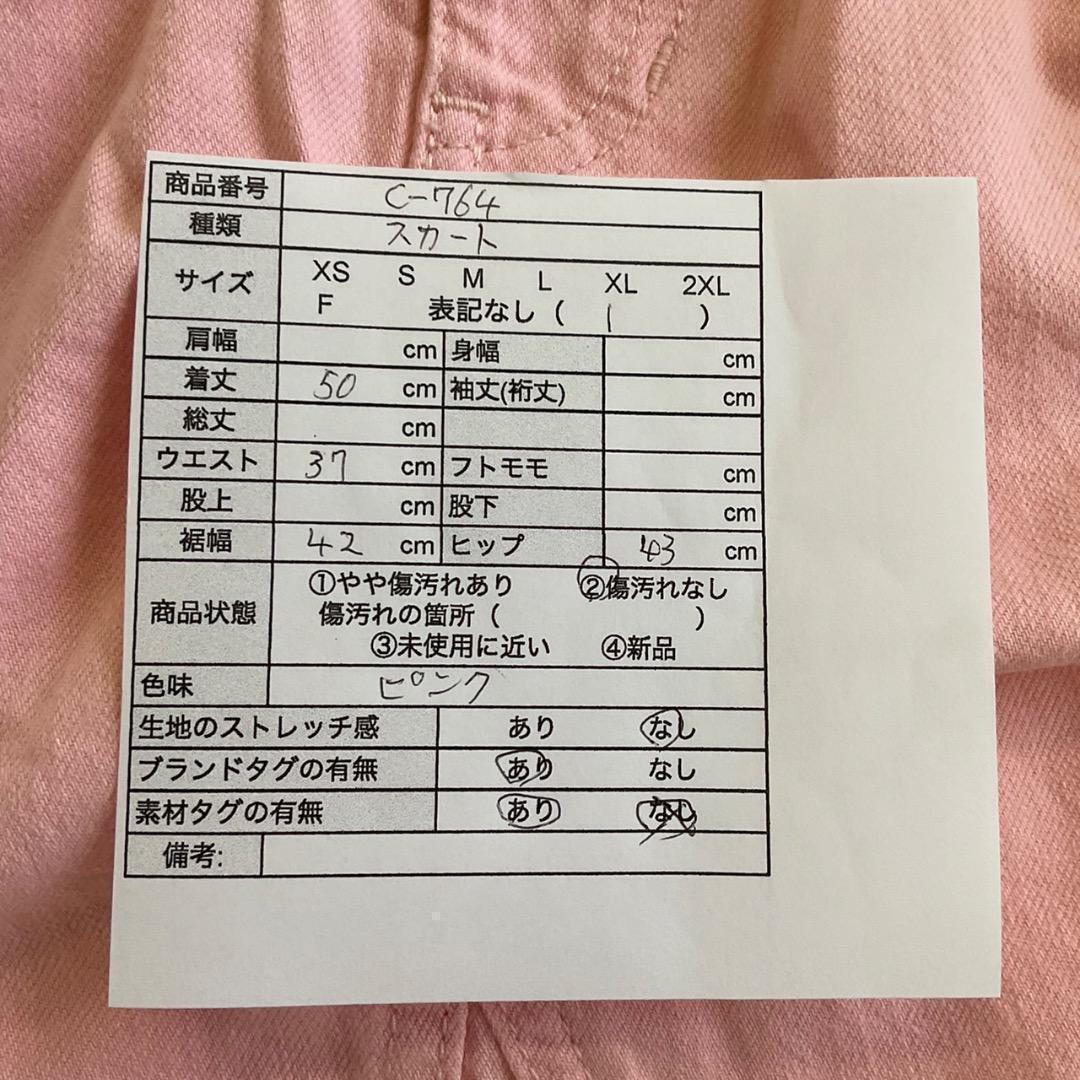 商品番号 C-764
種類 スカート
サイズ XS S M L XL 2XL
F 表記なし ( 1 )
肩幅 cm 身幅 cm
着丈 50 cm 袖丈(裄丈) cm
総丈 cm
ウエスト 37 cm フトモモ cm
股上 cm 股下 cm
裾幅 42 cm ヒップ 43 cm
商品状態 ①やや傷汚れあり ②傷汚れなし
傷汚れの箇所 ( )
③未使用に近い ④新品
色味 ピンク
生地のストレッチ感 あり なし
ブランドタグの有無 あり なし
素材タグの有無 あり なし
備考: